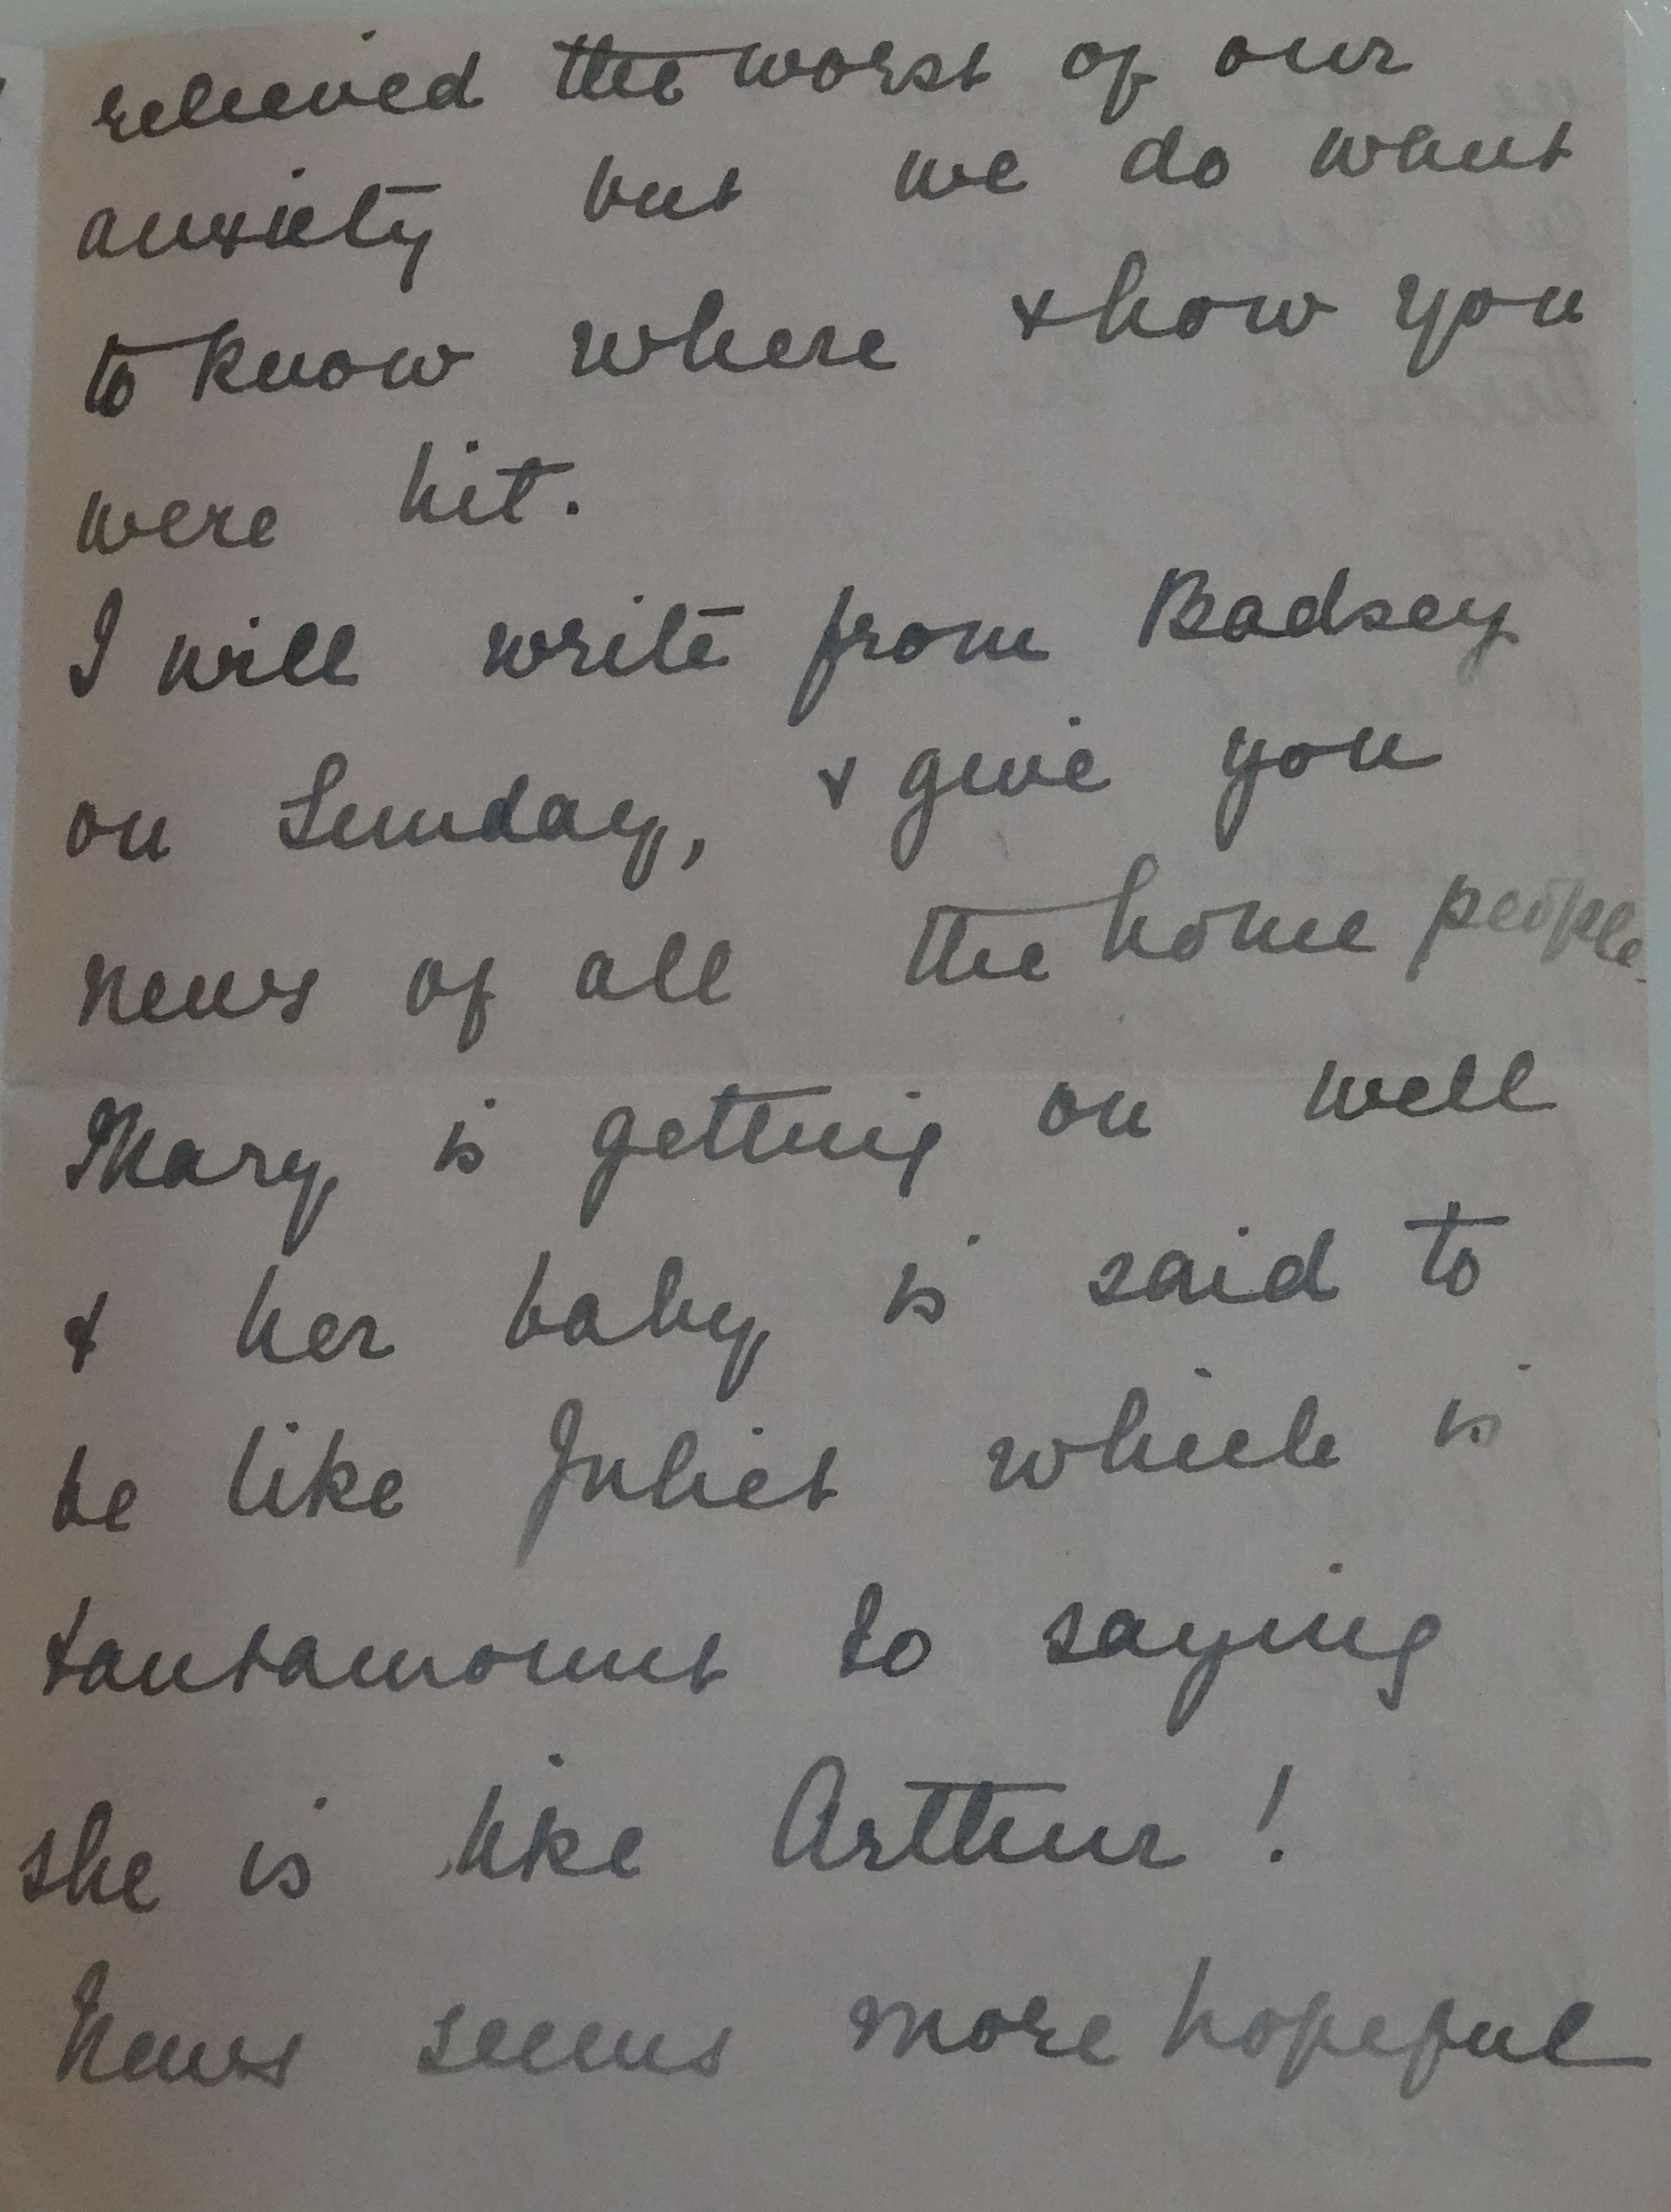 relieved the worst of our
anxiety but we do want
to know where & how you
were hit.
I will write from Badsey
on Sunday, & give you
news of all the home people.
Mary is getting on well
& her baby is said to
be like Juliet which is
tantamount to saying
she is like Arthur!
News seems more hopeful